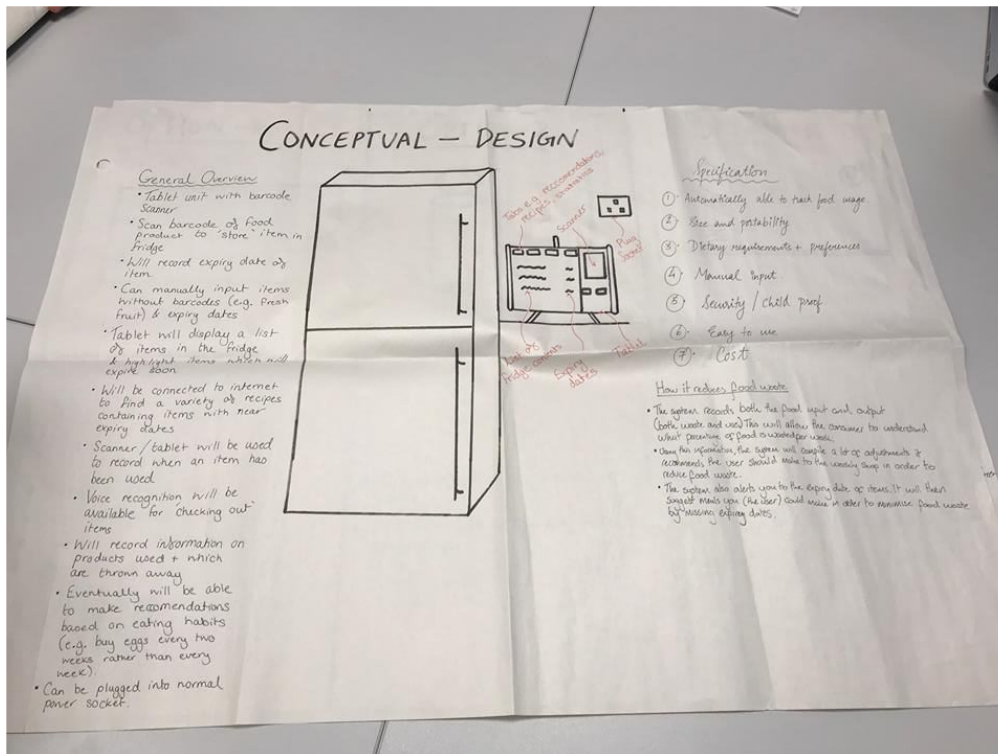 CONCEPTUAL - DESIGN
General Overview
• Tablet unit with barcode
Scanner
• Scan barcode of food
product to "store" item in
fridge
• Will record expiry date of
item
• Can manually input items
without barcodes (e.g. fresh
fruit) & expiry dates
• Tablet will display a list
of items in the fridge
& highlight items which will
expire soon
• Will be connected to internet
to find a variety of recipes
containing items with near
expiry dates
• Scanner/tablet will be used
to record when an item has
been used
• Voice recognition will be
available for checking out
items
• Will record information on
products used + which
are thrown away
• Eventually will be able
to make recomendations
based on eating habits
(e.g. buy eggs every two
weeks rather than every
week).
• Can be plugged into normal
power socket.
Tabs e.g. reccomendations,
recipes, statistics
Scanner
Plug
Socket
List of
fridge contents
Expiry
dates
Tablet
Specification
① Automatically able to track food usage.
② Size and portability
③ Dietary requirements + preferences
④ Manual input
⑤ Security / Child proof
⑥ Easy to use
⑦ Cost
How it reduces food waste
• The system records both the food input and output
(both waste and use) This will allow the consumer to understand
what of food is wasted per week.
• Using this information, the system will compile a list of adjustments it
recommends the user should make to the weekly shop in order to
reduce food waste.
• The system also alerts you to the expiry date of items. It will then
suggest meals you (the user) could make in order to minimise food waste
by missing expiry dates.